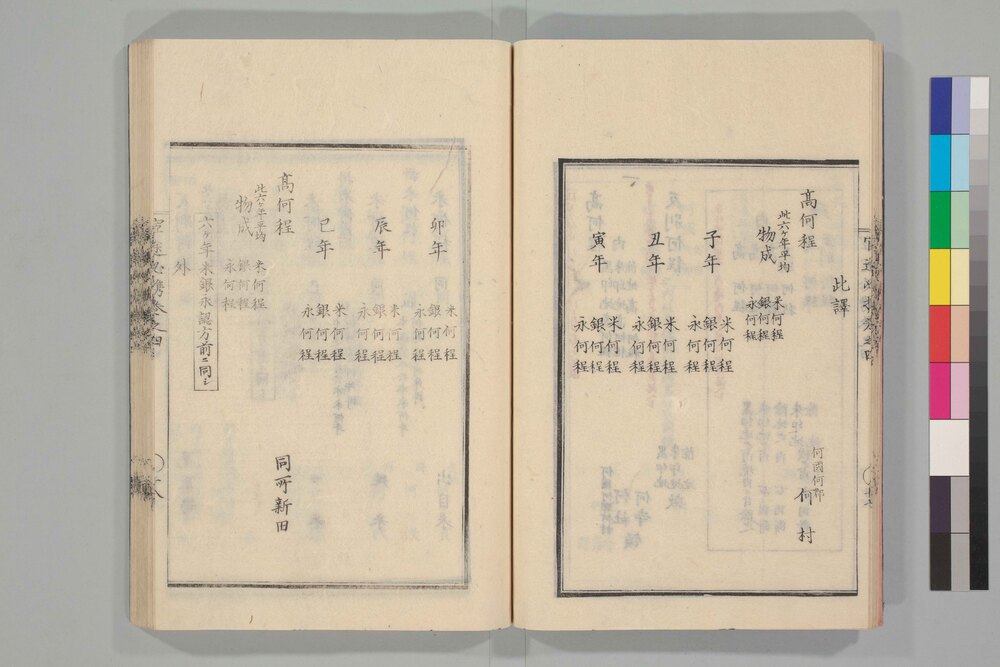 此譯
高何程
此六ヶ年平均
物成
米何程
銀何程
永何程
何國何郡
何村
子年
米何程
銀何程
永何程
丑年
米何程
銀何程
永何程
寅年
米何程
銀何程
永何程
卯年
米何程
銀何程
永何程
辰年
米何程
銀何程
永何程
巳年
米何程
銀何程
永何程
高何程
同所新田
此六ヶ年平均
物成
米何程
銀何程
永何程
六ヶ年米銀永認方前ニ同シ
外